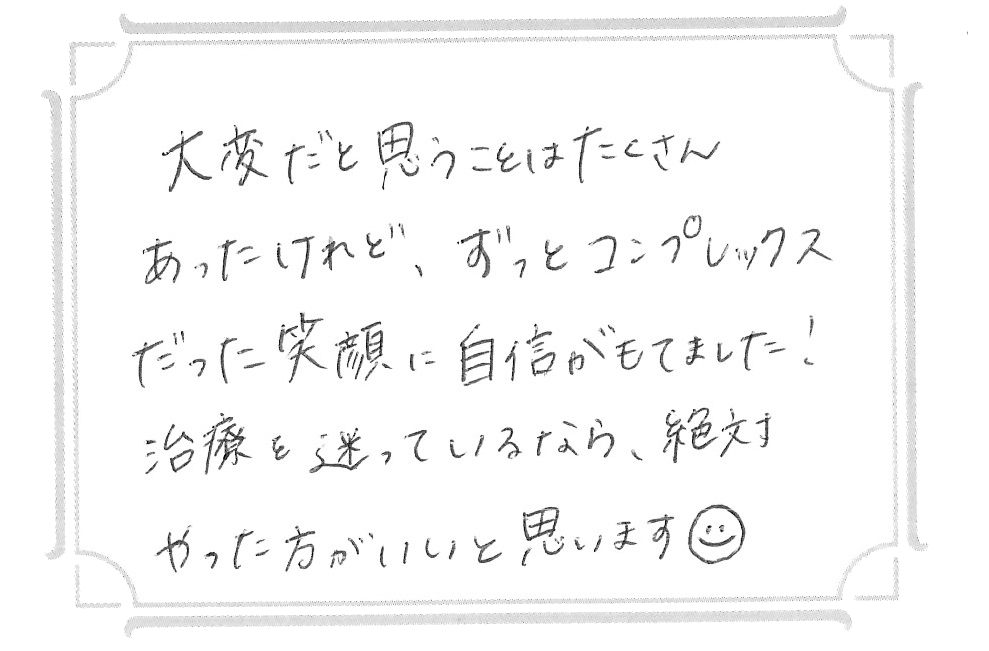 大変だと思うことはたくさん
あったけれど、ずっとコンプレックス
だった笑顔に自信がもてました!
治療を迷っているなら、絶対
やった方がいいと思います☺